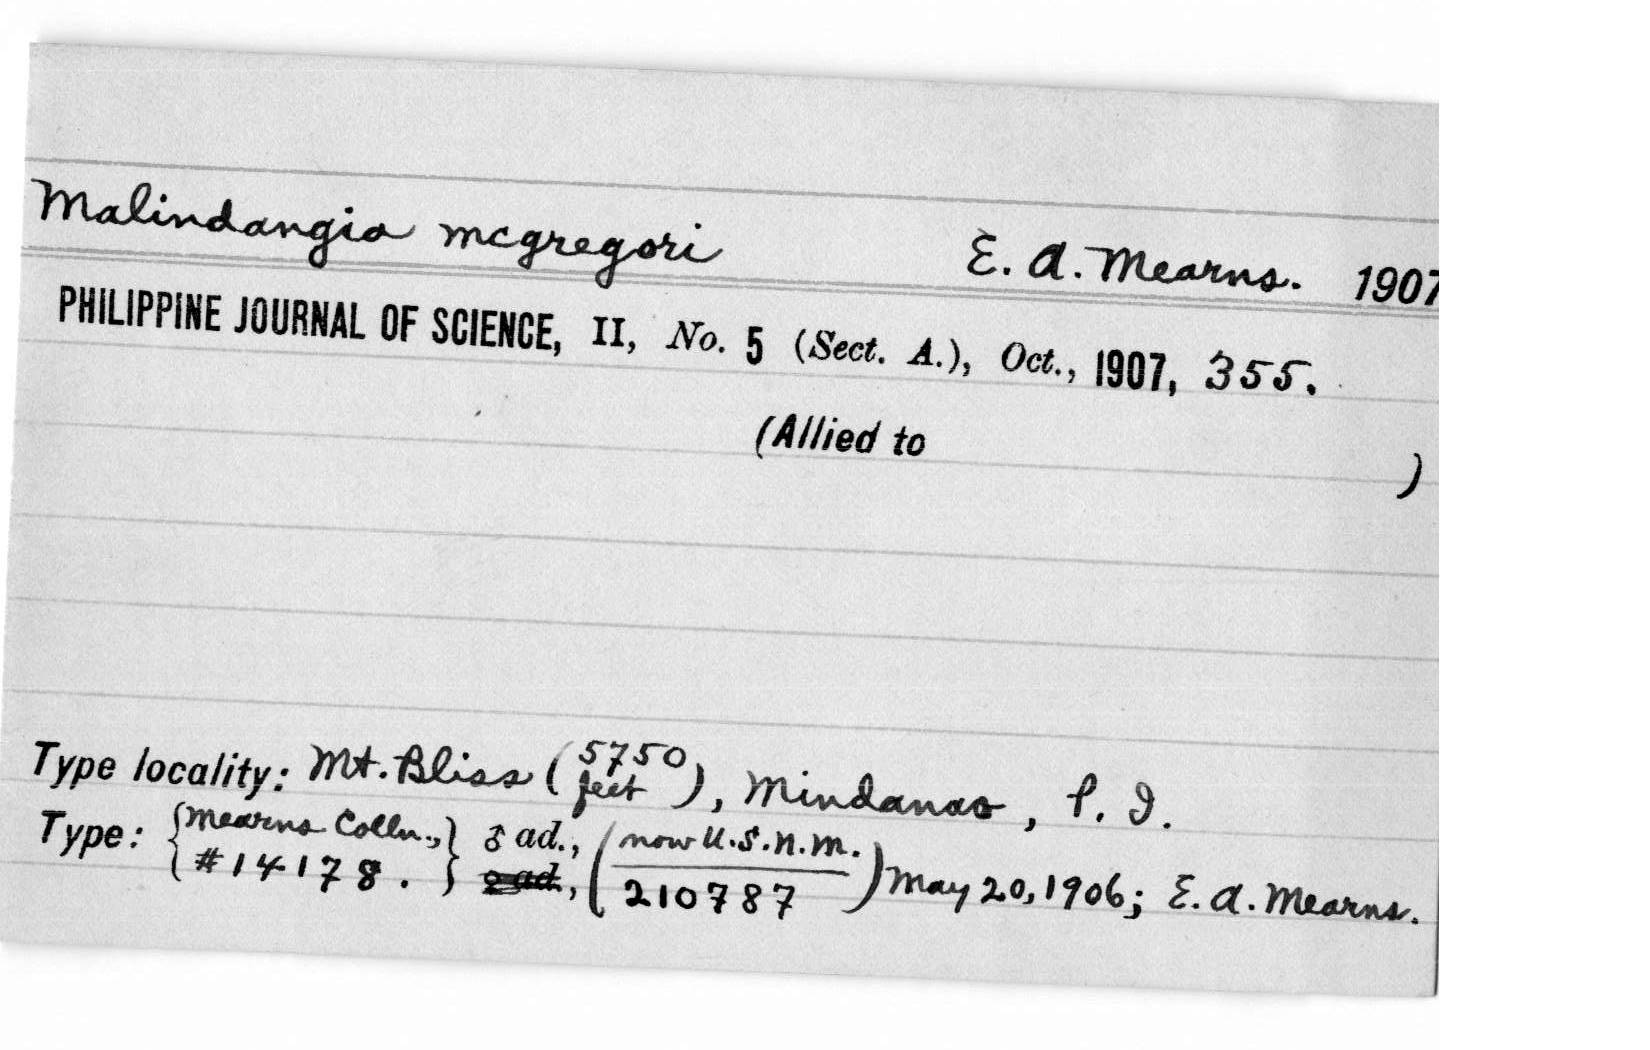 Malindangia mcgregori E. A. Mearns. 1907
PHILIPPINE JOURNAL OF SCIENCE, II, No. 5 (Sect. A.), Oct., 1907, 355.
(Allied to )
Type locality: Mt. Bliss (5750 feet), Mindanao, P. I.
Type: {Mearns Colln., #14178.} ♂ ad., ♀ ad., (now U.S.N.M. 210787) May 20, 1906; E. A. Mearns.